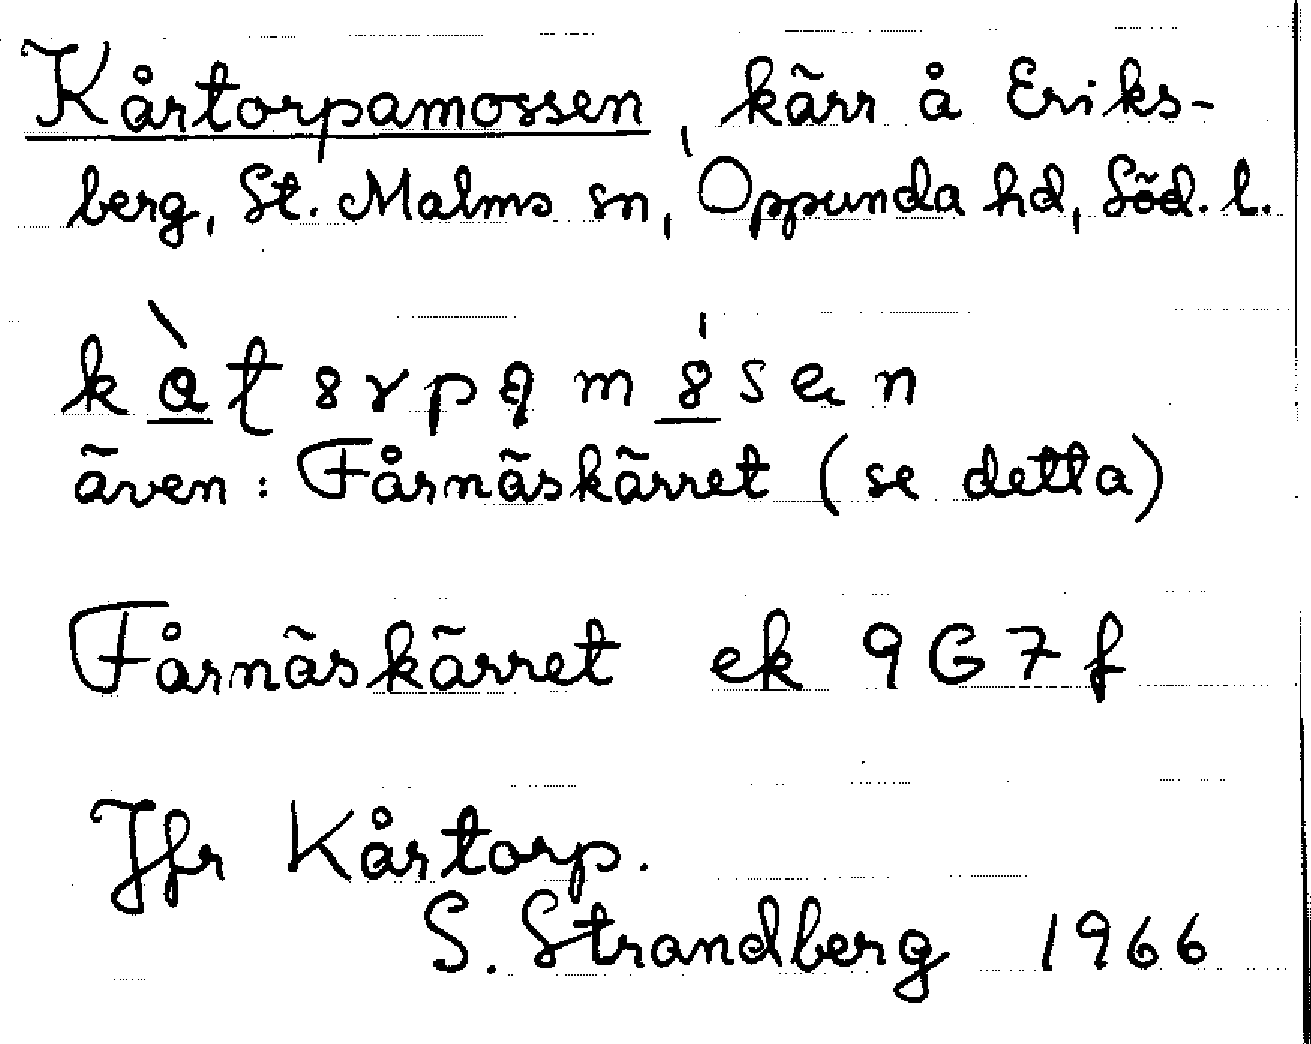 Kårtorpamossen, kärr å Eriks-
berg, St. Malms sn, Oppunda hd, Söd. l.
även: Fårnäskärret (se detta)
Fårnäskärret ek 9G7f
Jfr Kårtorp.
S. Strandberg 1966